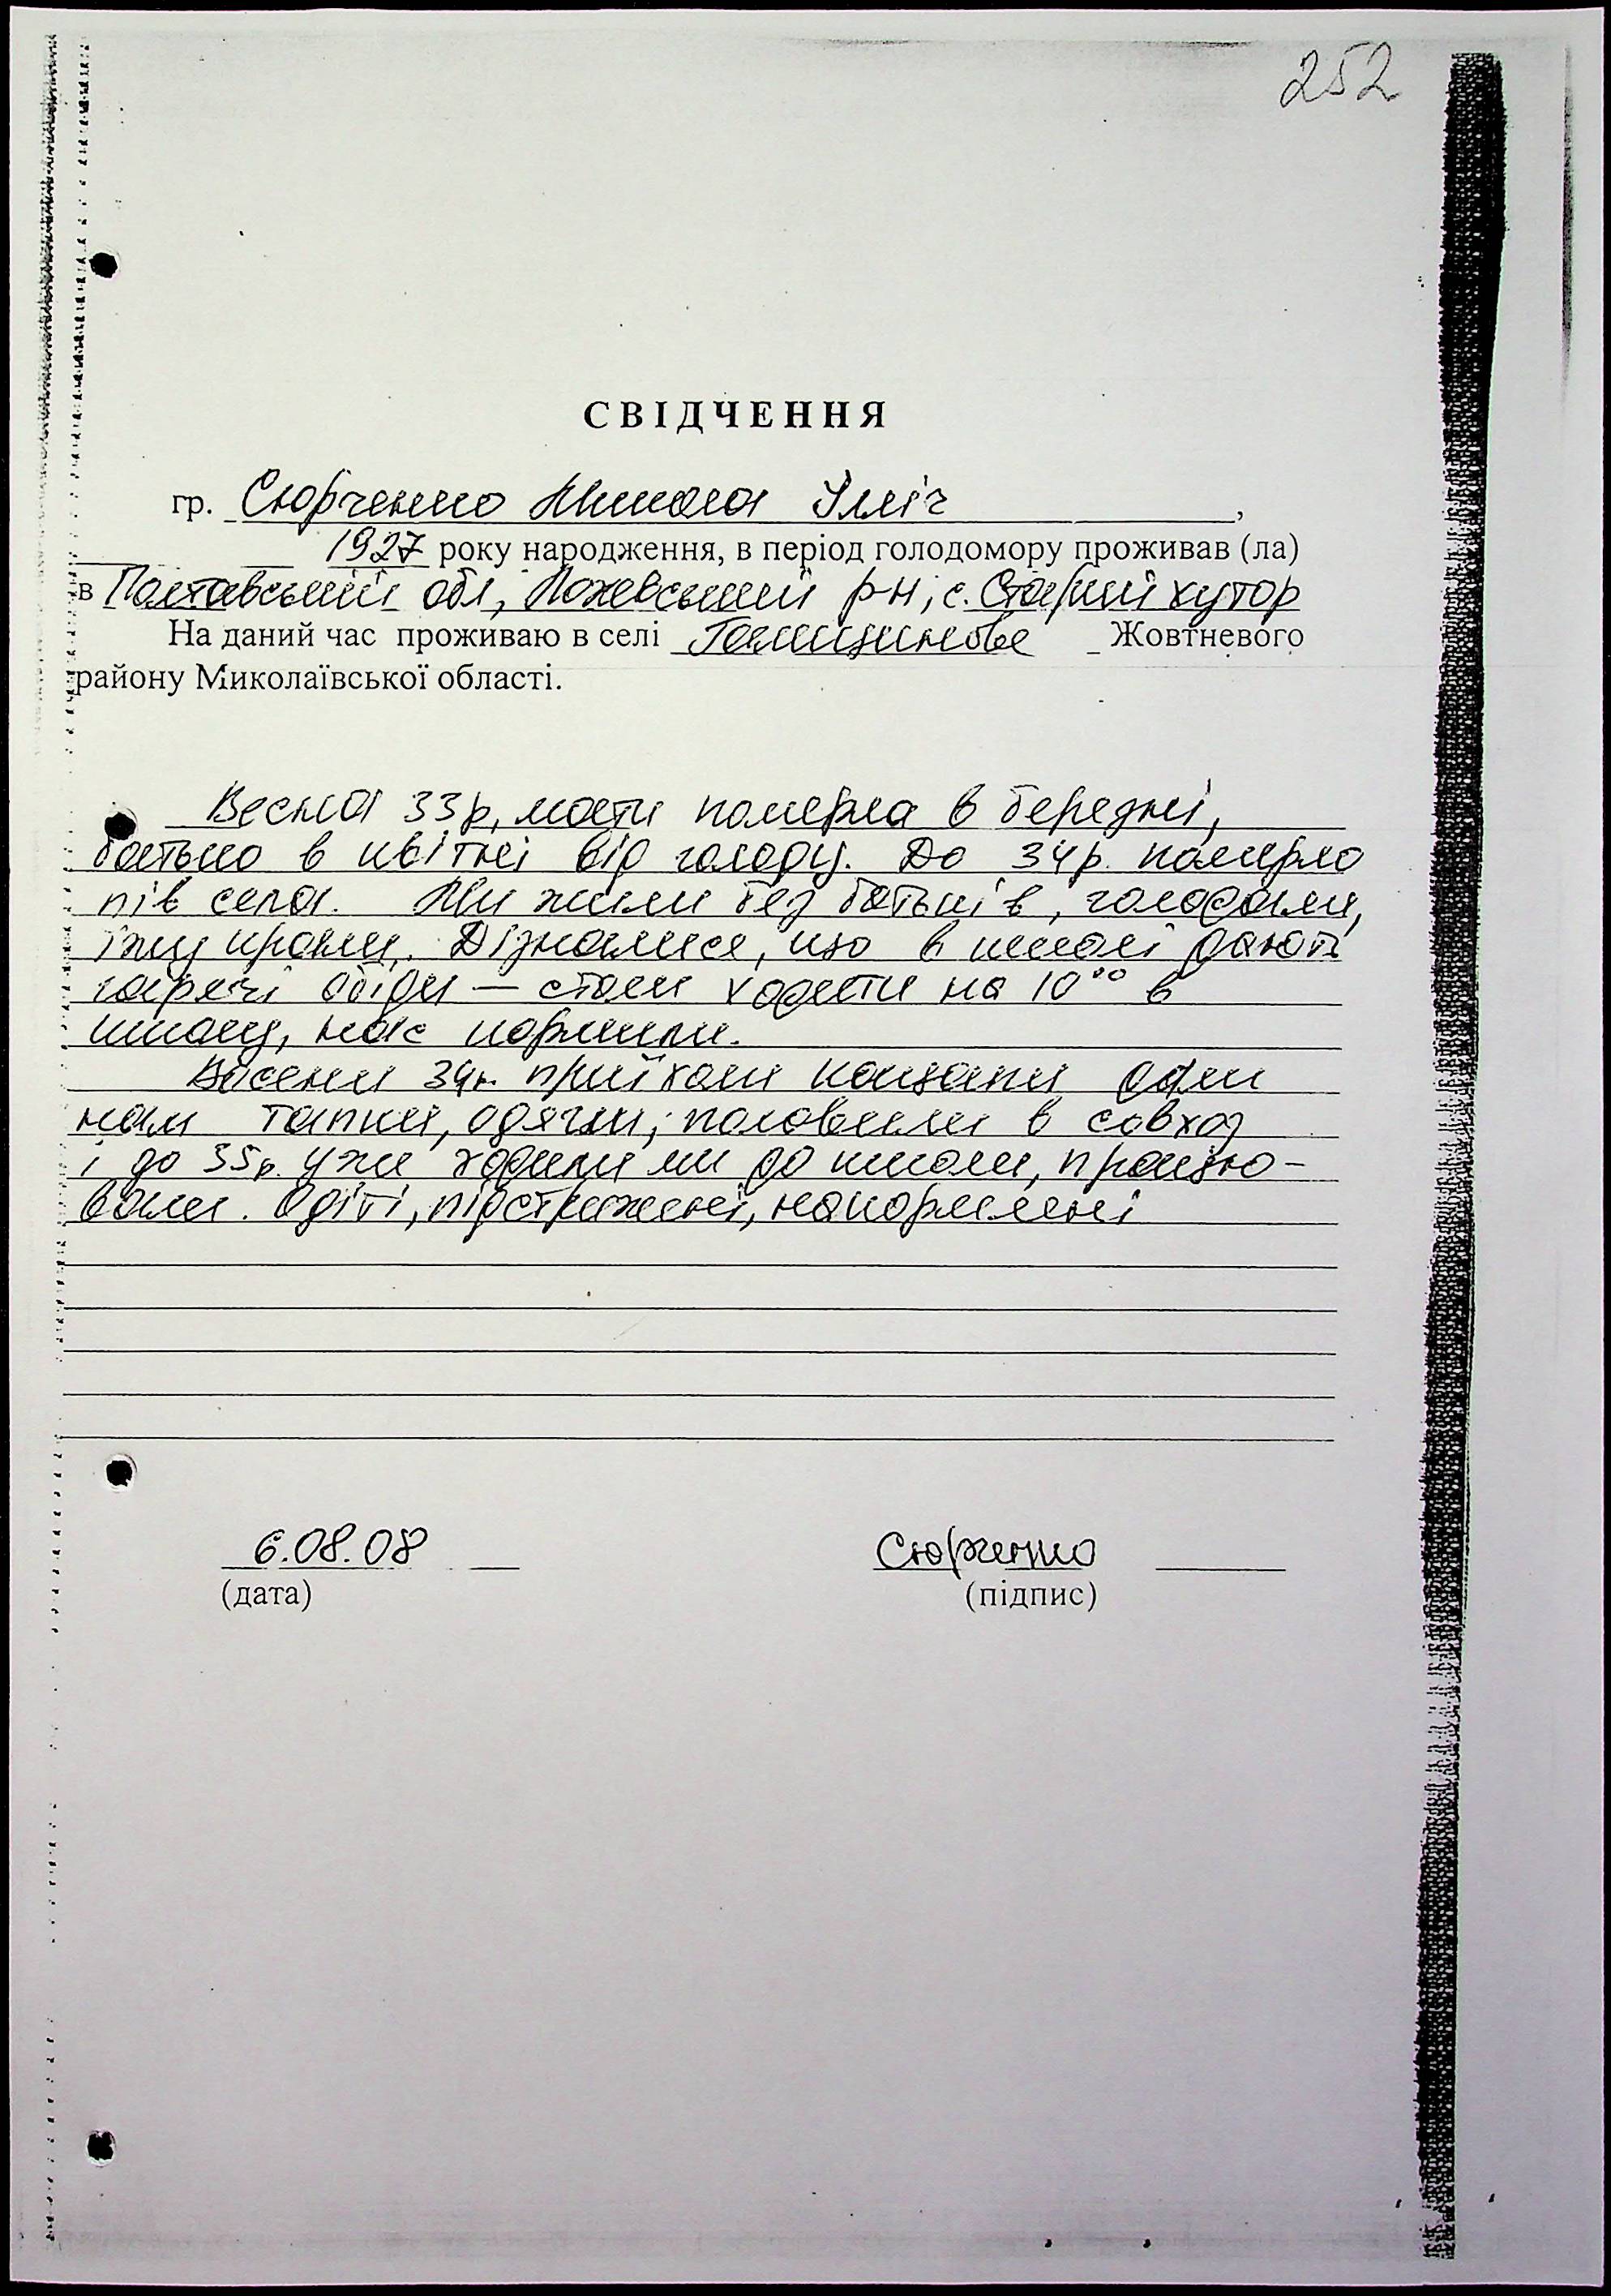 252
СВІДЧЕННЯ
гр. Скорченко Микола Ілліч,
1927 року народження, в період голодомору проживав (ла)
в Полтавський обл, р-н, с. Старий хутор
На даний час проживаю в селі Галицинове Жовтневого
району Миколаївської області.
Весна 33р, мати померла в березні,
батько в квітні від голоду. До 34р. померло
пів села. Ми жили без батьків, голодали,
їжу крали. Дізналися, що в школі дають
гарячі обіди — стали ходити на 10⁰⁰ в
школу, нас кормили.
Восени 34р. приїхали дали
нам тапки, одягли, половили в совхоз
і до 35р. уже ходили ми до школи, працю-
вали. Одіті, підстрижені, накормлені
6.08.08 Скорченко
(дата) (підпис)